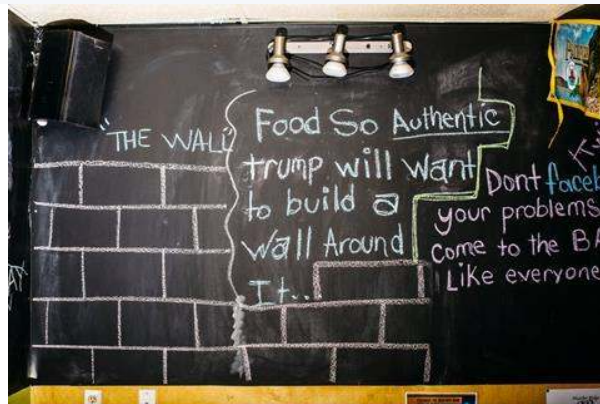 "THE WALL"
Food So Authentic
trump will want
to build a
Wall Around
It...
Dont faceb
your problems
Come to the BA
Like everyone